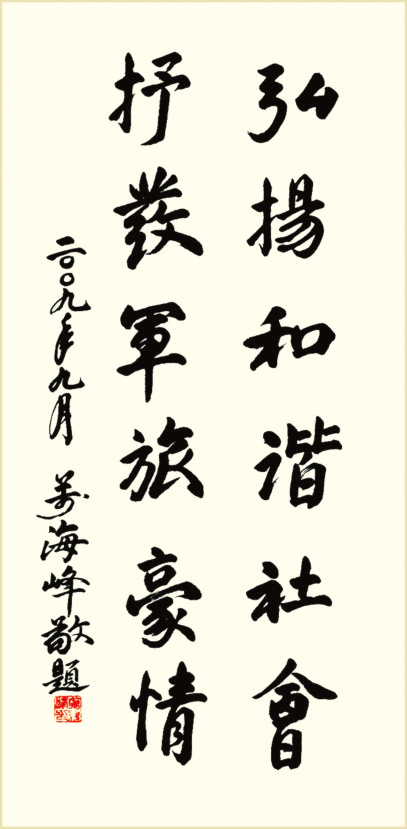 弘揚和谐社會
抒發軍旅豪情
二〇〇九年九月 萬海峰敬題